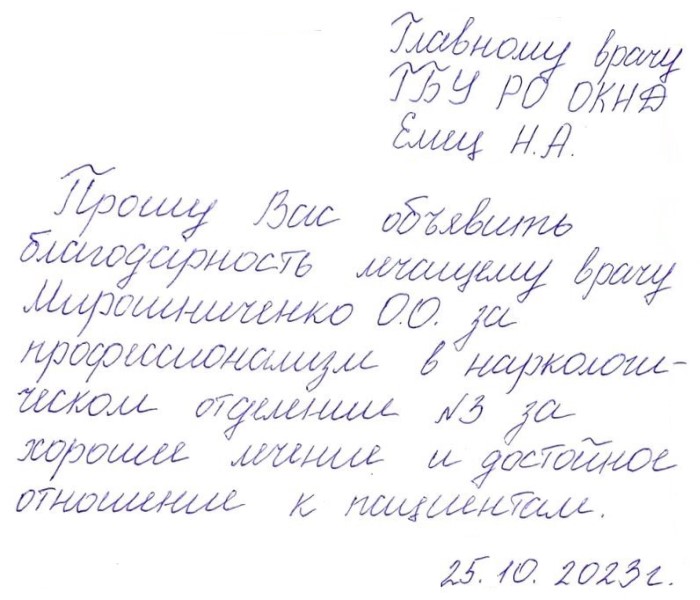 Главному врачу
ГБУ РО ОКНД
Емец Н.А.
Прошу Вас объявить
благодарность лечащему врачу
Мирошниченко О.О. за
профессионализм в наркологи-
ческом отделении №3 за
хорошее лечение и достойное
отношение к пациентам.
25.10.2023г.